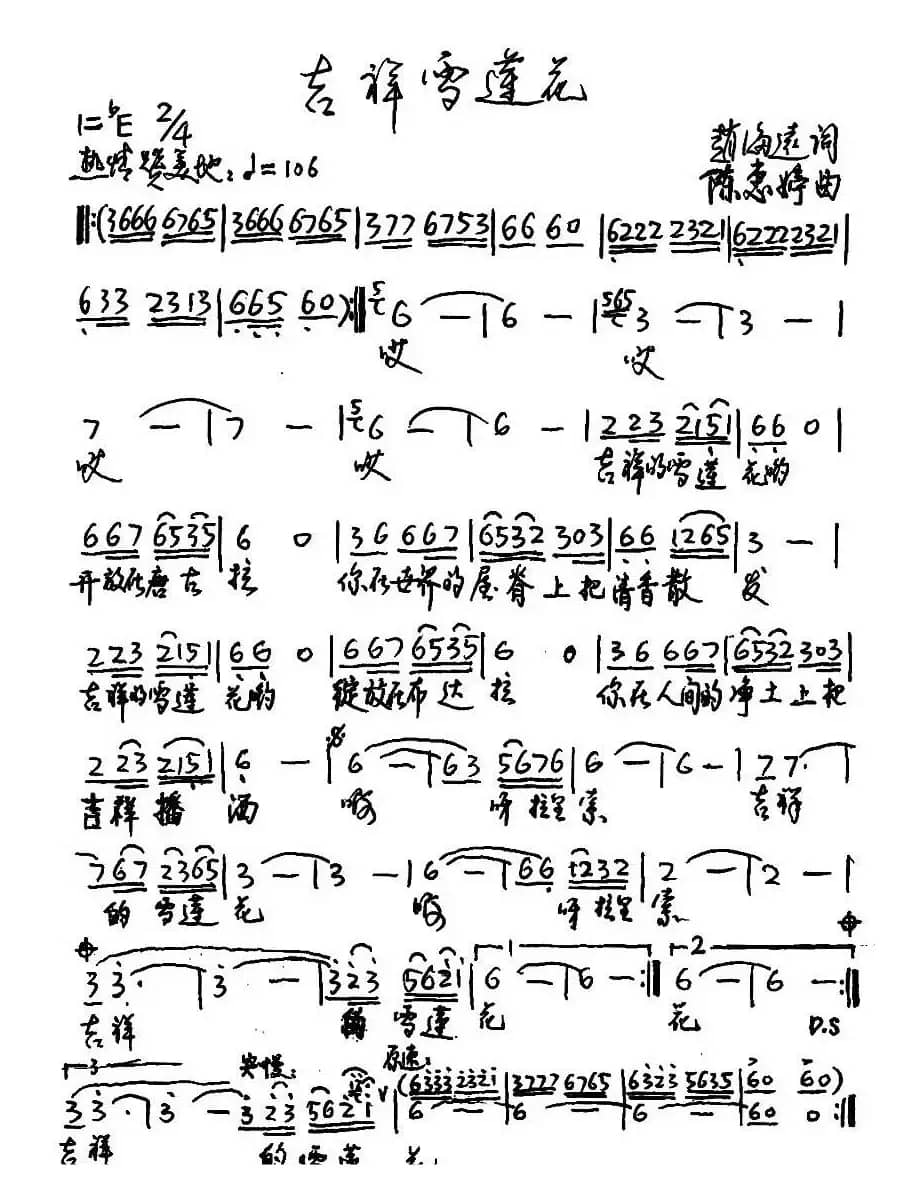 吉祥雪莲花
1=ᵇE 2/4
热情赞美地：♩=106
赵海远词
陈惠婷曲
‖:(3666 6765|3666 6765|377 6753|66 60|6222 2321|6222 2321|
633 2313|665 60):‖ 5 6 —|6 —|565 3 —|3 —|
哎 哎
7 —|7 —|5 6 —|6 —|223 2151|66 0|
哎 哎 吉祥的雪莲 花哟
667 6535|6 0|36 667|6532 303|66 1265|3 —|
开放在唐古 拉 你在世界的屋脊上把清香散 发
223 2151|66 0|667 6535|6 0|36 667|6532 303|
吉祥的雪莲 花哟 绽放在布达 拉 你在人间的净土上把
2 23 2151|6 —|6 —|63 5676|6 —|6 —|77·|
吉祥 播 洒 啊 呀拉里索 吉祥
767 2365|3 —|3 —|6 —|66 1232|2 —|2 —|
的 雪莲 花 啊 呀拉里索
33·|3 —|323 5621|1 6 —|6 —:‖2 6 —|6 —:‖
吉祥 的 雪莲 花 花 D.S
3
突慢： 原速：
33·|3 —|323 5621 ∨|(6333 2321|3222 6765|6323 5635|60 60)
6 — 6 — 6 — 60 0:‖
吉祥 的雪莲 花